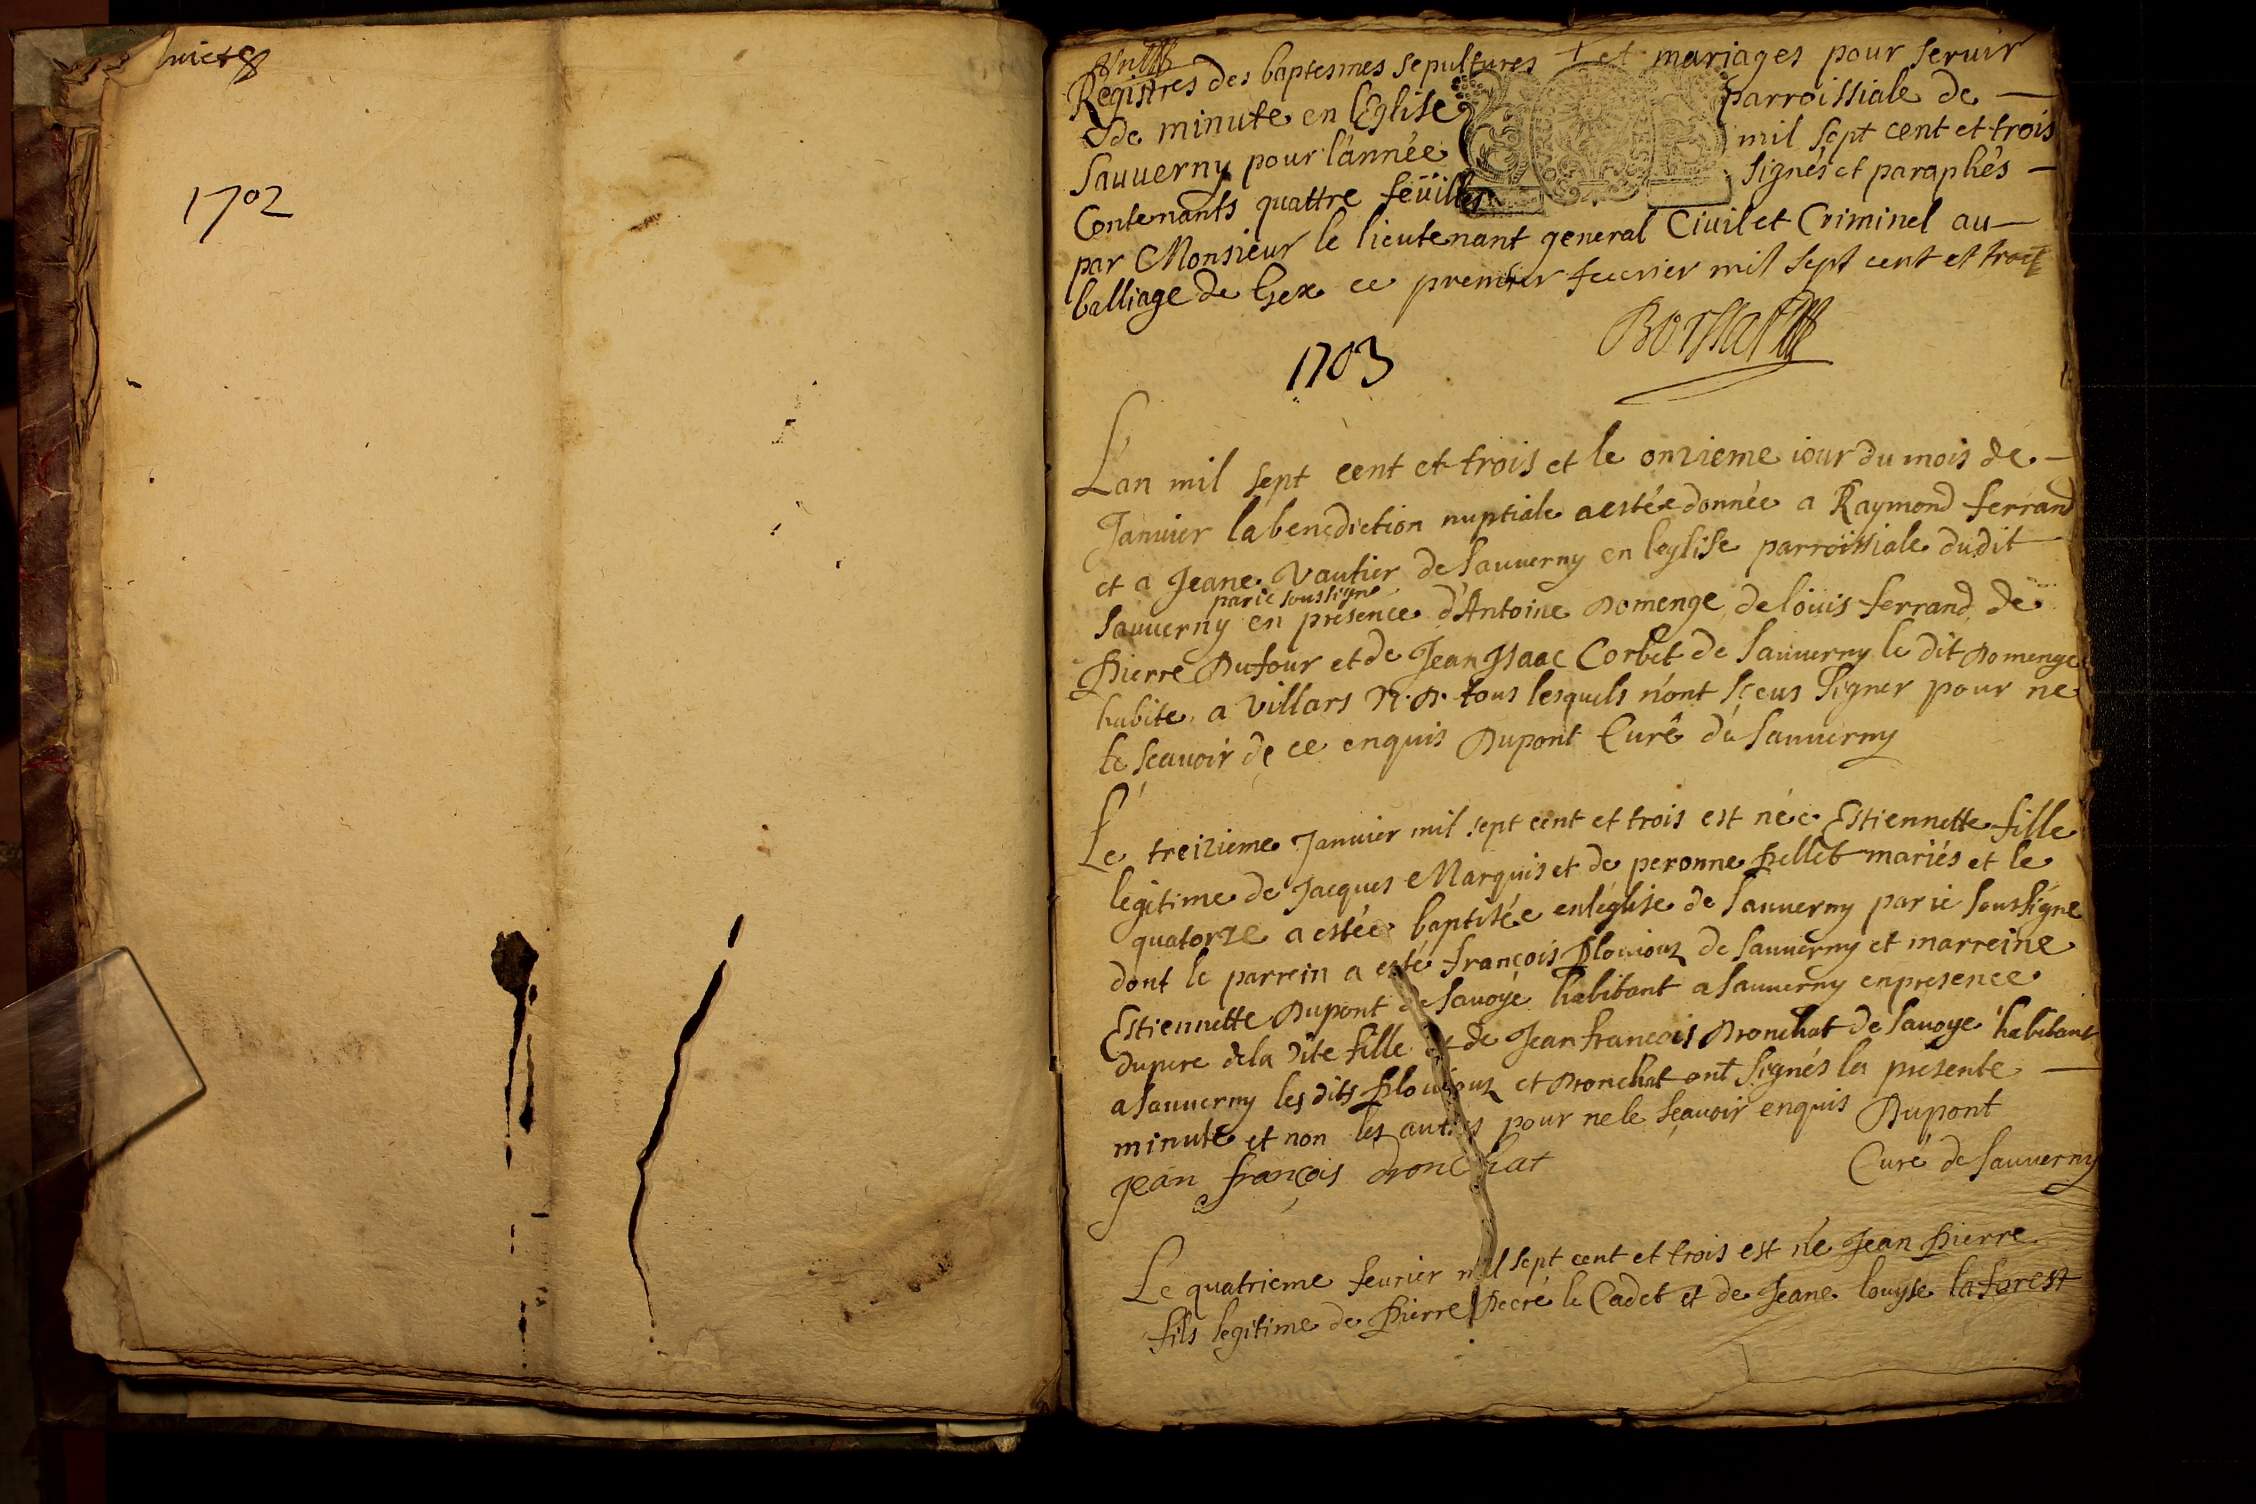 1702
Registres des baptesmes sepultures + et mariages pour seruir
de minute en lEglise parroissiale de
Sauuerny pour l'année mil sept cent et trois
Contenants quattre feüilles signés et paraphés
par Monsieur le lieutenant general Ciuil et Criminel au
balliage de Gex ce premier feburier mil sept cent et trois
1703
L'an mil sept cent et trois et le onzieme iour du mois de
Januier la benediction nuptiale a estée donnée a Raymond ferrand
et a Jeane Vautier de Sauuerny en leglise parroissiale dudit
par ie soussigne
Sauuerny en presence d'Antoine Domenge, de loüis ferrand de
Pierre Dufour et de Jean Isaac Corbet de Sauuerny le dit Domenge
habite a Villars N. D. tous lesquels n'ont sçeus signer pour ne
le sçauoir de ce enquis Dupont Curé de Sauuerny
Le treizieme Januier mil sept cent et trois est née Estiennette fille
legitime de Jacques Marquis et de peronne Pellet mariés et le
quatorze a estée baptisée en léglise de Sauuerny par ie soussigné
dont le parrein a esté françois de Sauuerny et marreine
Estiennette Dupont de Sauoye habitant a Sauuerny en presence
du pere de la dite fille et de Jean francois Dronchat de Sauoye habitant
a Sauuerny les dits et Dronchat ont signés la presente
minute et non les autres pour ne le sçauoir enquis Dupont
jean françois dronchat Curé de Sauuerny
Le quatrieme feurier mil sept cent et trois est né Jean Pierre
fils legitime de Pierre Decré le Cadet et de Jeane louyse la forest